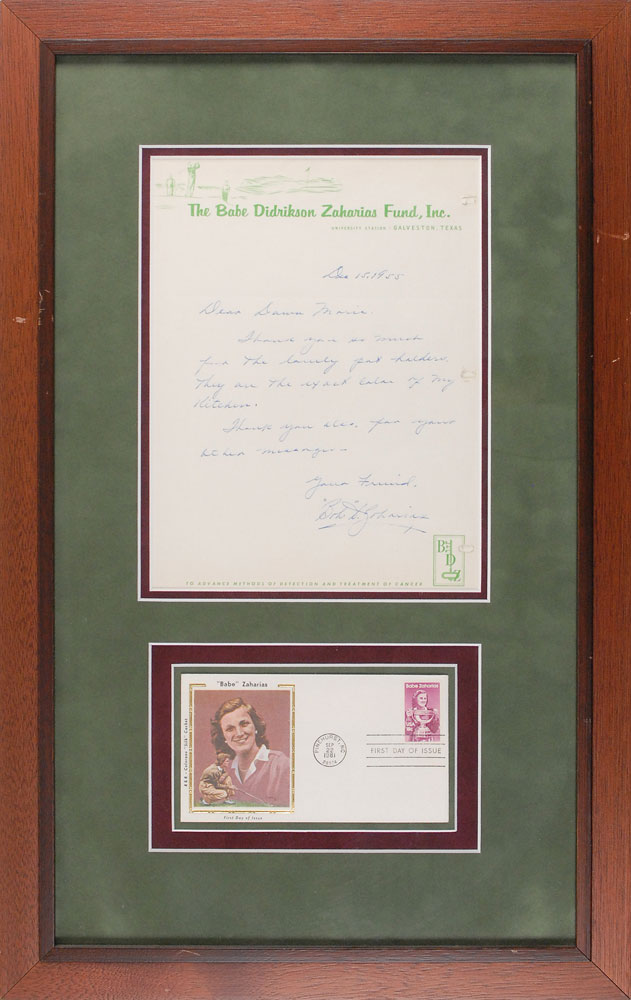 The Babe Didrikson Zaharias Fund, Inc.
UNIVERSITY STATION · GALVESTON, TEXAS
Dec 15, 1955
Dear Dawn Marie.
Thank you so much
for the lovely pot holders.
They are the exact color of my
kitchen.
Thank you also, for your
kind message.
Your Friend.
"Babe" D. Zaharias
B D Z
TO ADVANCE METHODS OF DETECTION AND TREATMENT OF CANCER
"Babe" Zaharias
Colorano "Silk" Cachet
First Day of Issue
PINEHURST, NC
SEP
22
1981
28374
Babe Zaharias
FIRST DAY OF ISSUE